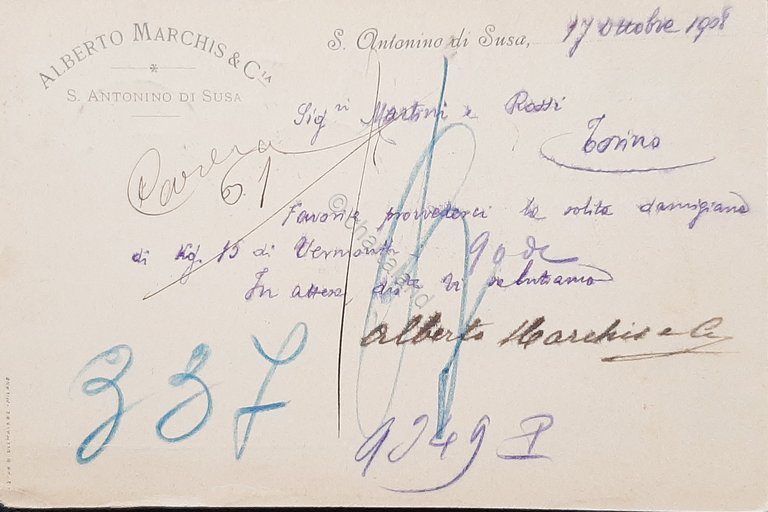 ALBERTO MARCHIS & Cia
S. ANTONINO DI SUSA
S. Antonino di Susa, 17 Ottobre 1908
Sigri Martini e Rossi
Torino
61
Favorite provvederci la solita damigiana
di Kg. 15 di Vermouth
In attesa, vi salutiamo
Alberto Marchis e C
337
9249
© Chartaland